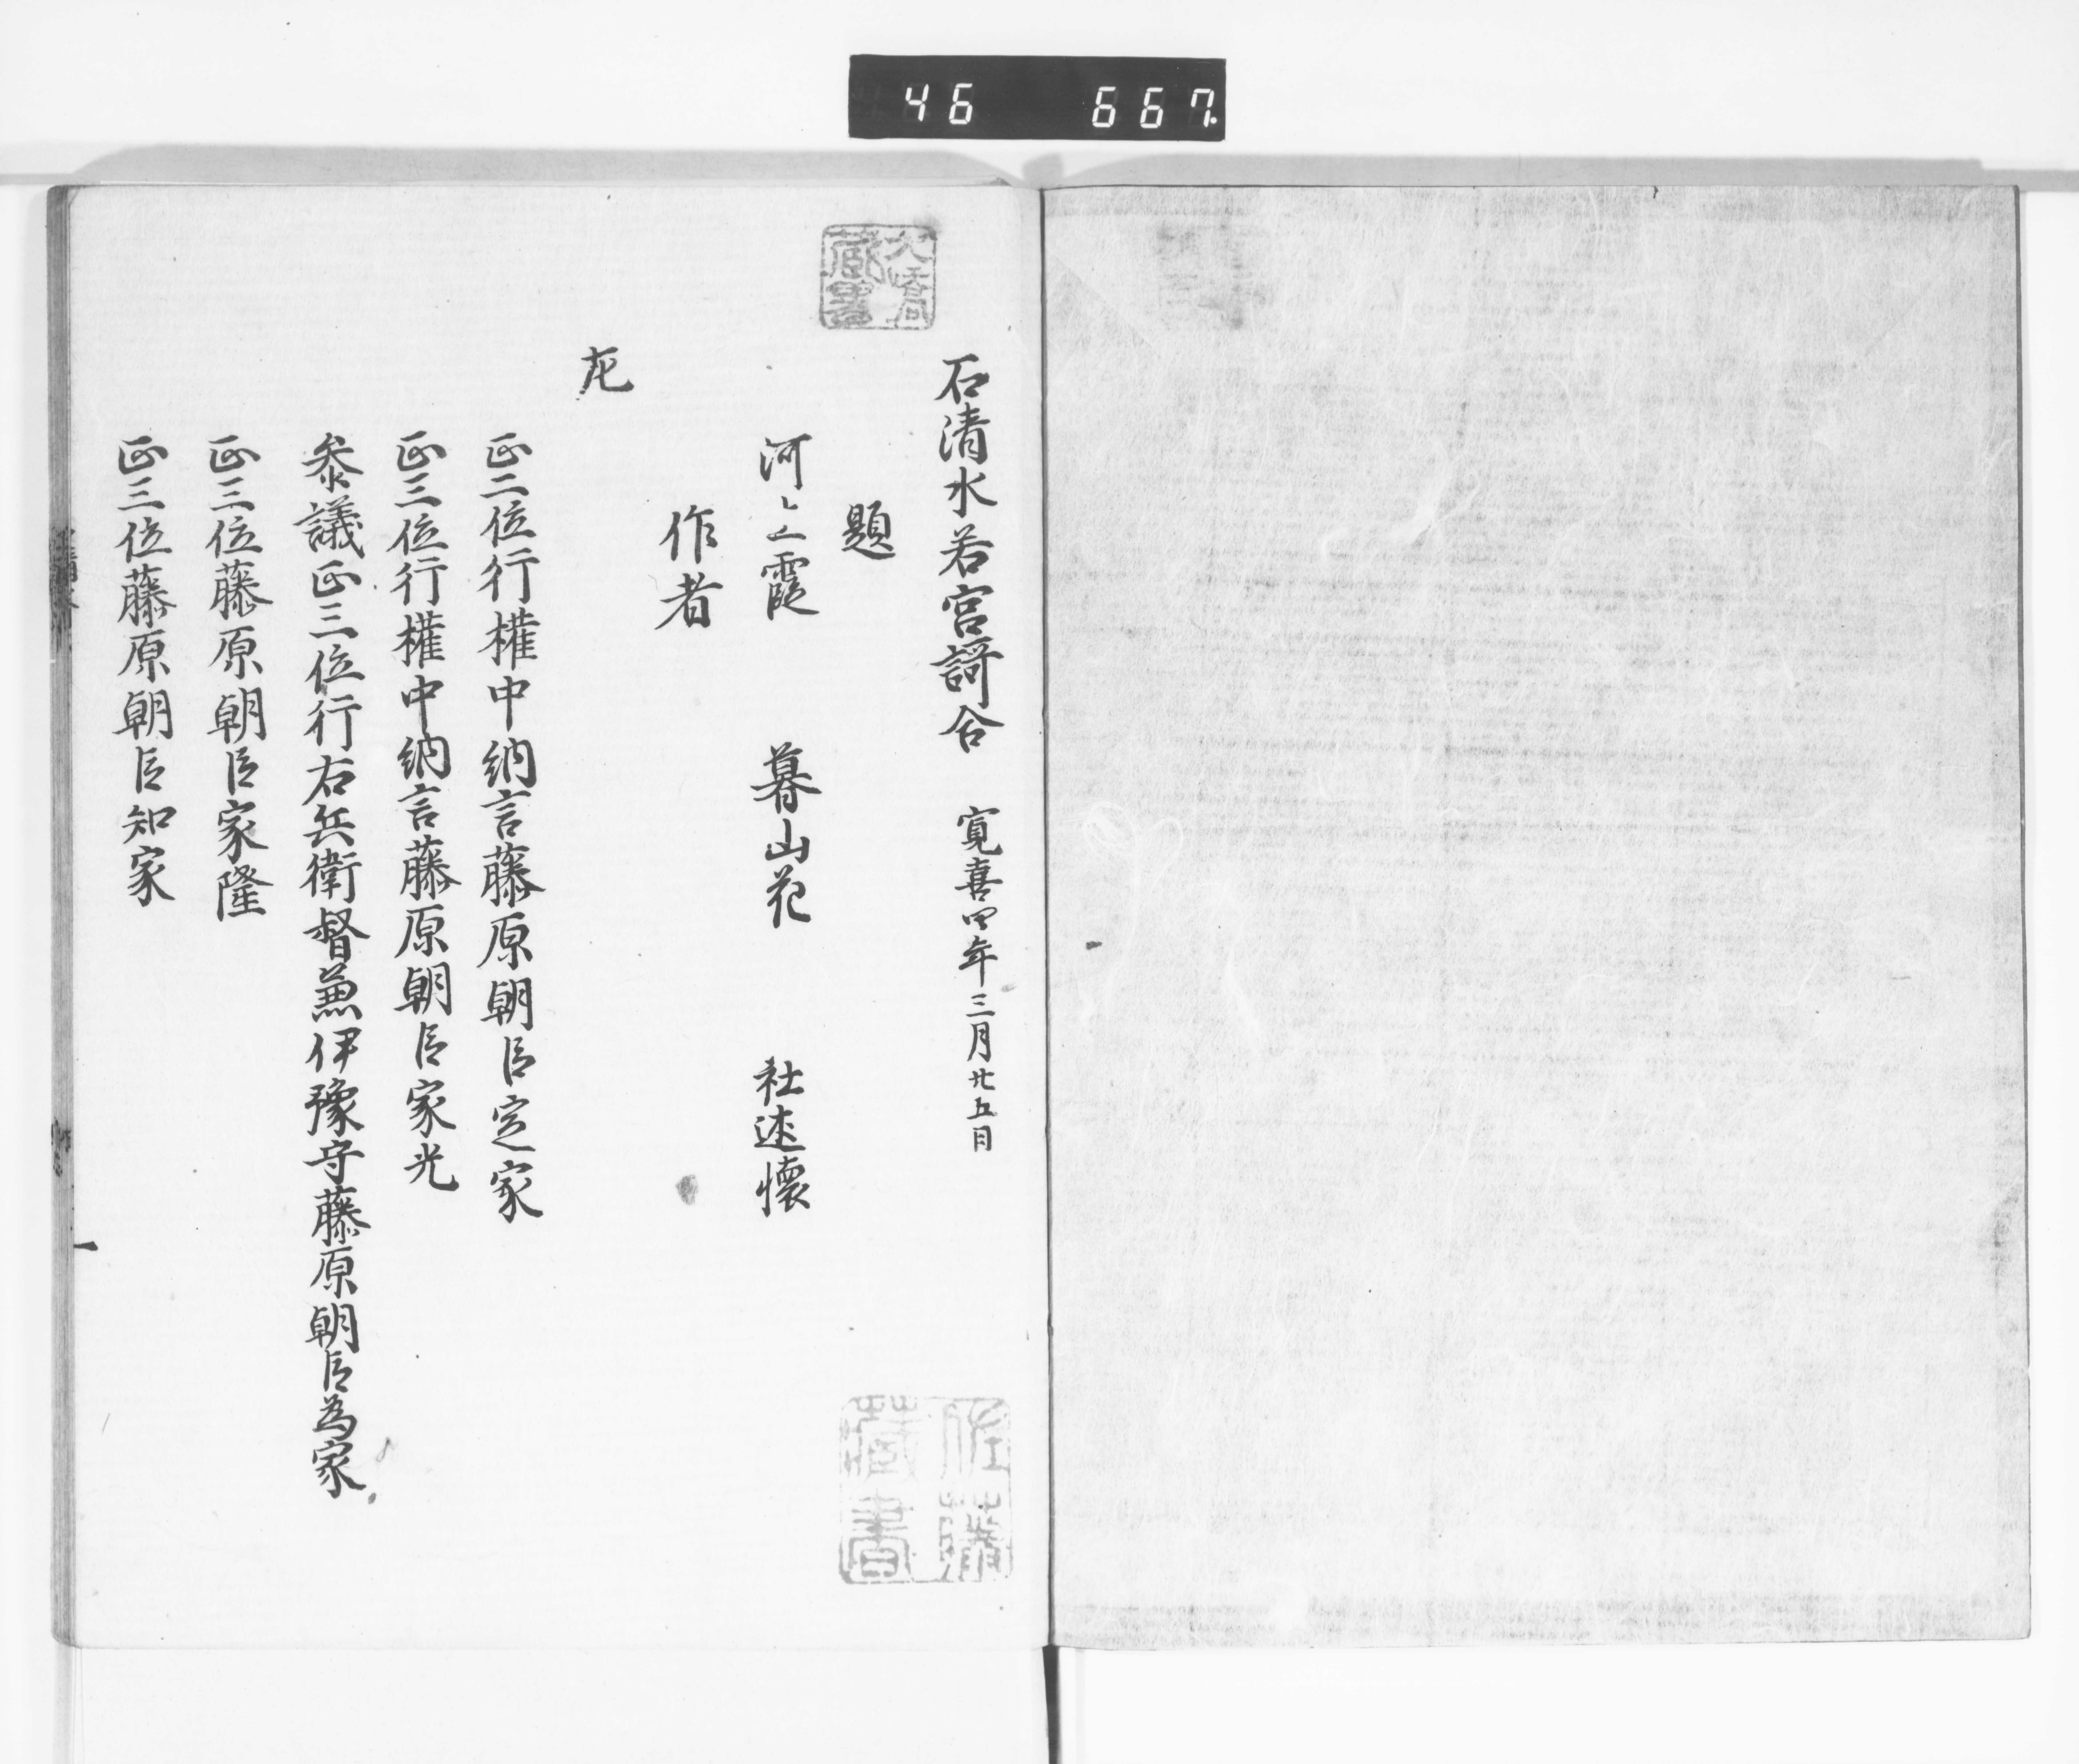 46 667
石清水若宮謌合 寛喜四年三月廿五日
題
河上霞 暮山花 社述懐
作者
左
正二位行權中納言藤原朝臣定家
正三位行權中納言藤原朝臣家光
参議正三位行右兵衛督兼伊豫守藤原朝臣為家
正三位藤原朝臣家隆
正三位藤原朝臣知家
一
大橋
藏書
佐藤
藏書